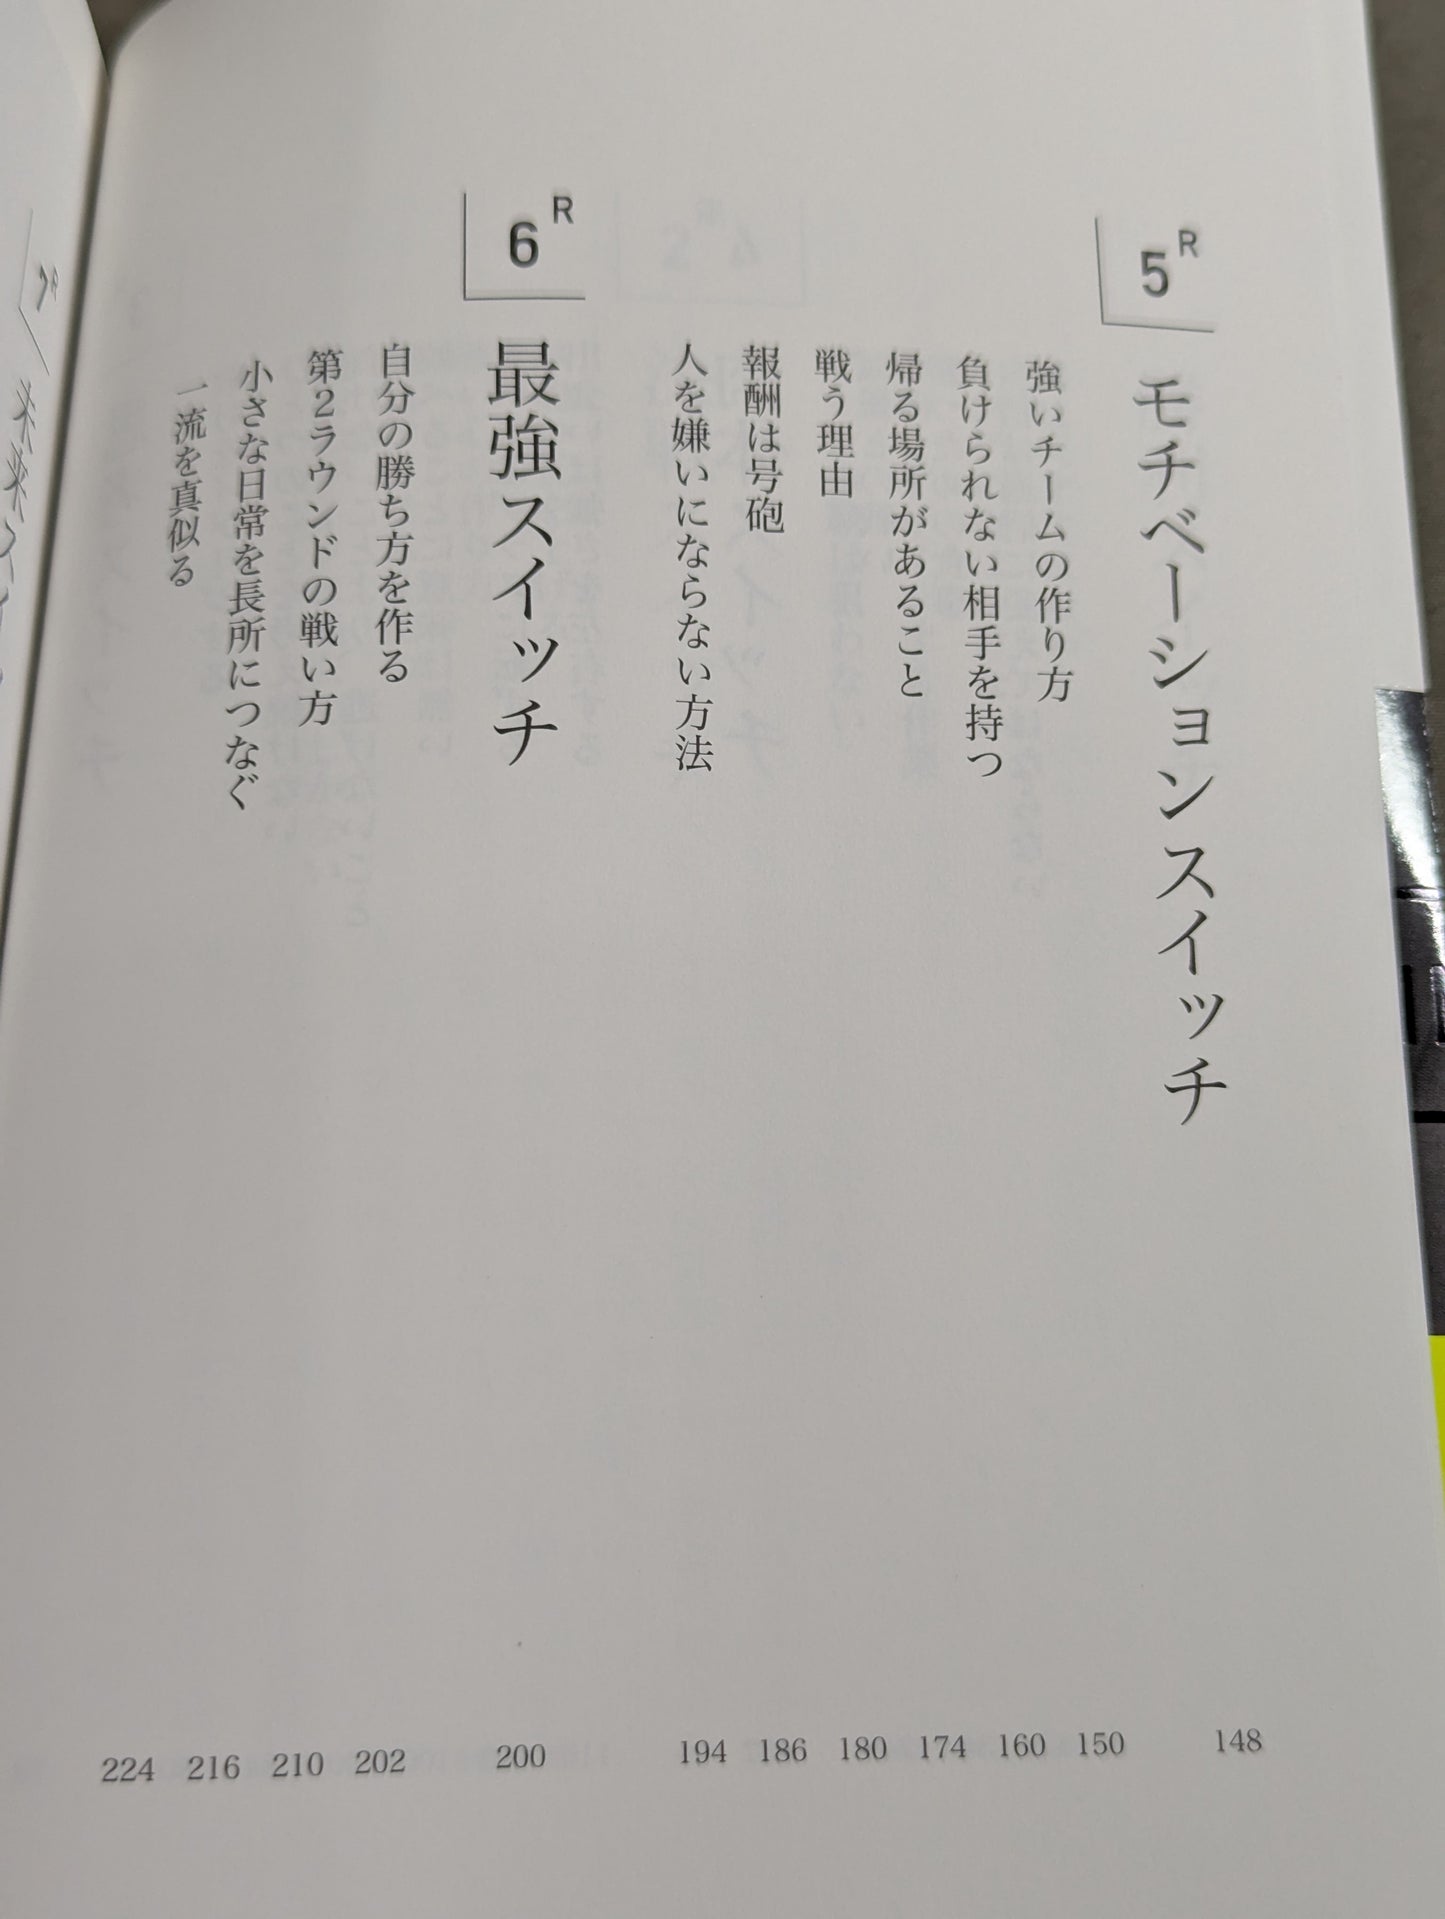 5R
モチベーションスイッチ
148
強いチームの作り方
150
負けられない相手を持つ
160
帰る場所があること
174
戦う理由
180
報酬は号砲
186
人を嫌いにならない方法
194
6R
最強スイッチ
200
自分の勝ち方を作る
202
第2ラウンドの戦い方
210
小さな日常を長所につなぐ
216
一流を真似る
224
7R